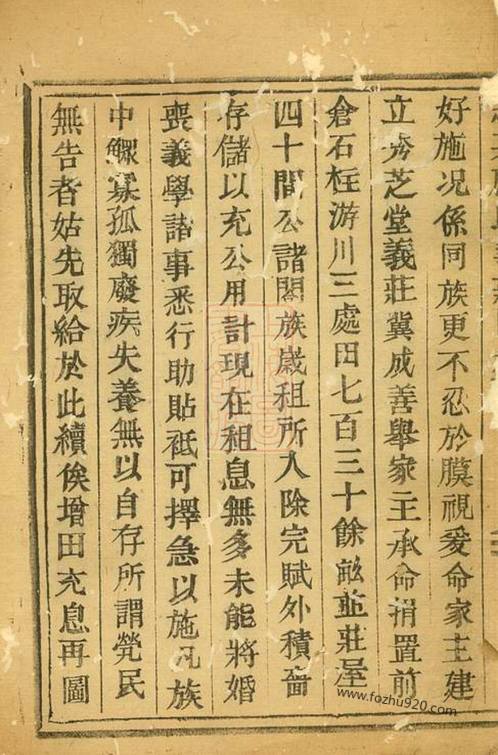 好施况係同族更不忍於膜視爰命家主建
立秀芝堂義莊冀成善舉家主承命捐置前
倉石枉游川三處田七百三十餘畝並莊屋
四十間公諸閤族歲租所入除完賦外積嗇
存儲以充公用計現在租息無多未能將婚
喪義學諸事悉行助貼祗可擇急以施凡族
中鰥寡孤獨廢疾失養無以自存所謂煢民
無告者姑先取給於此續俟增田充息再圖
www.fozhu920.com